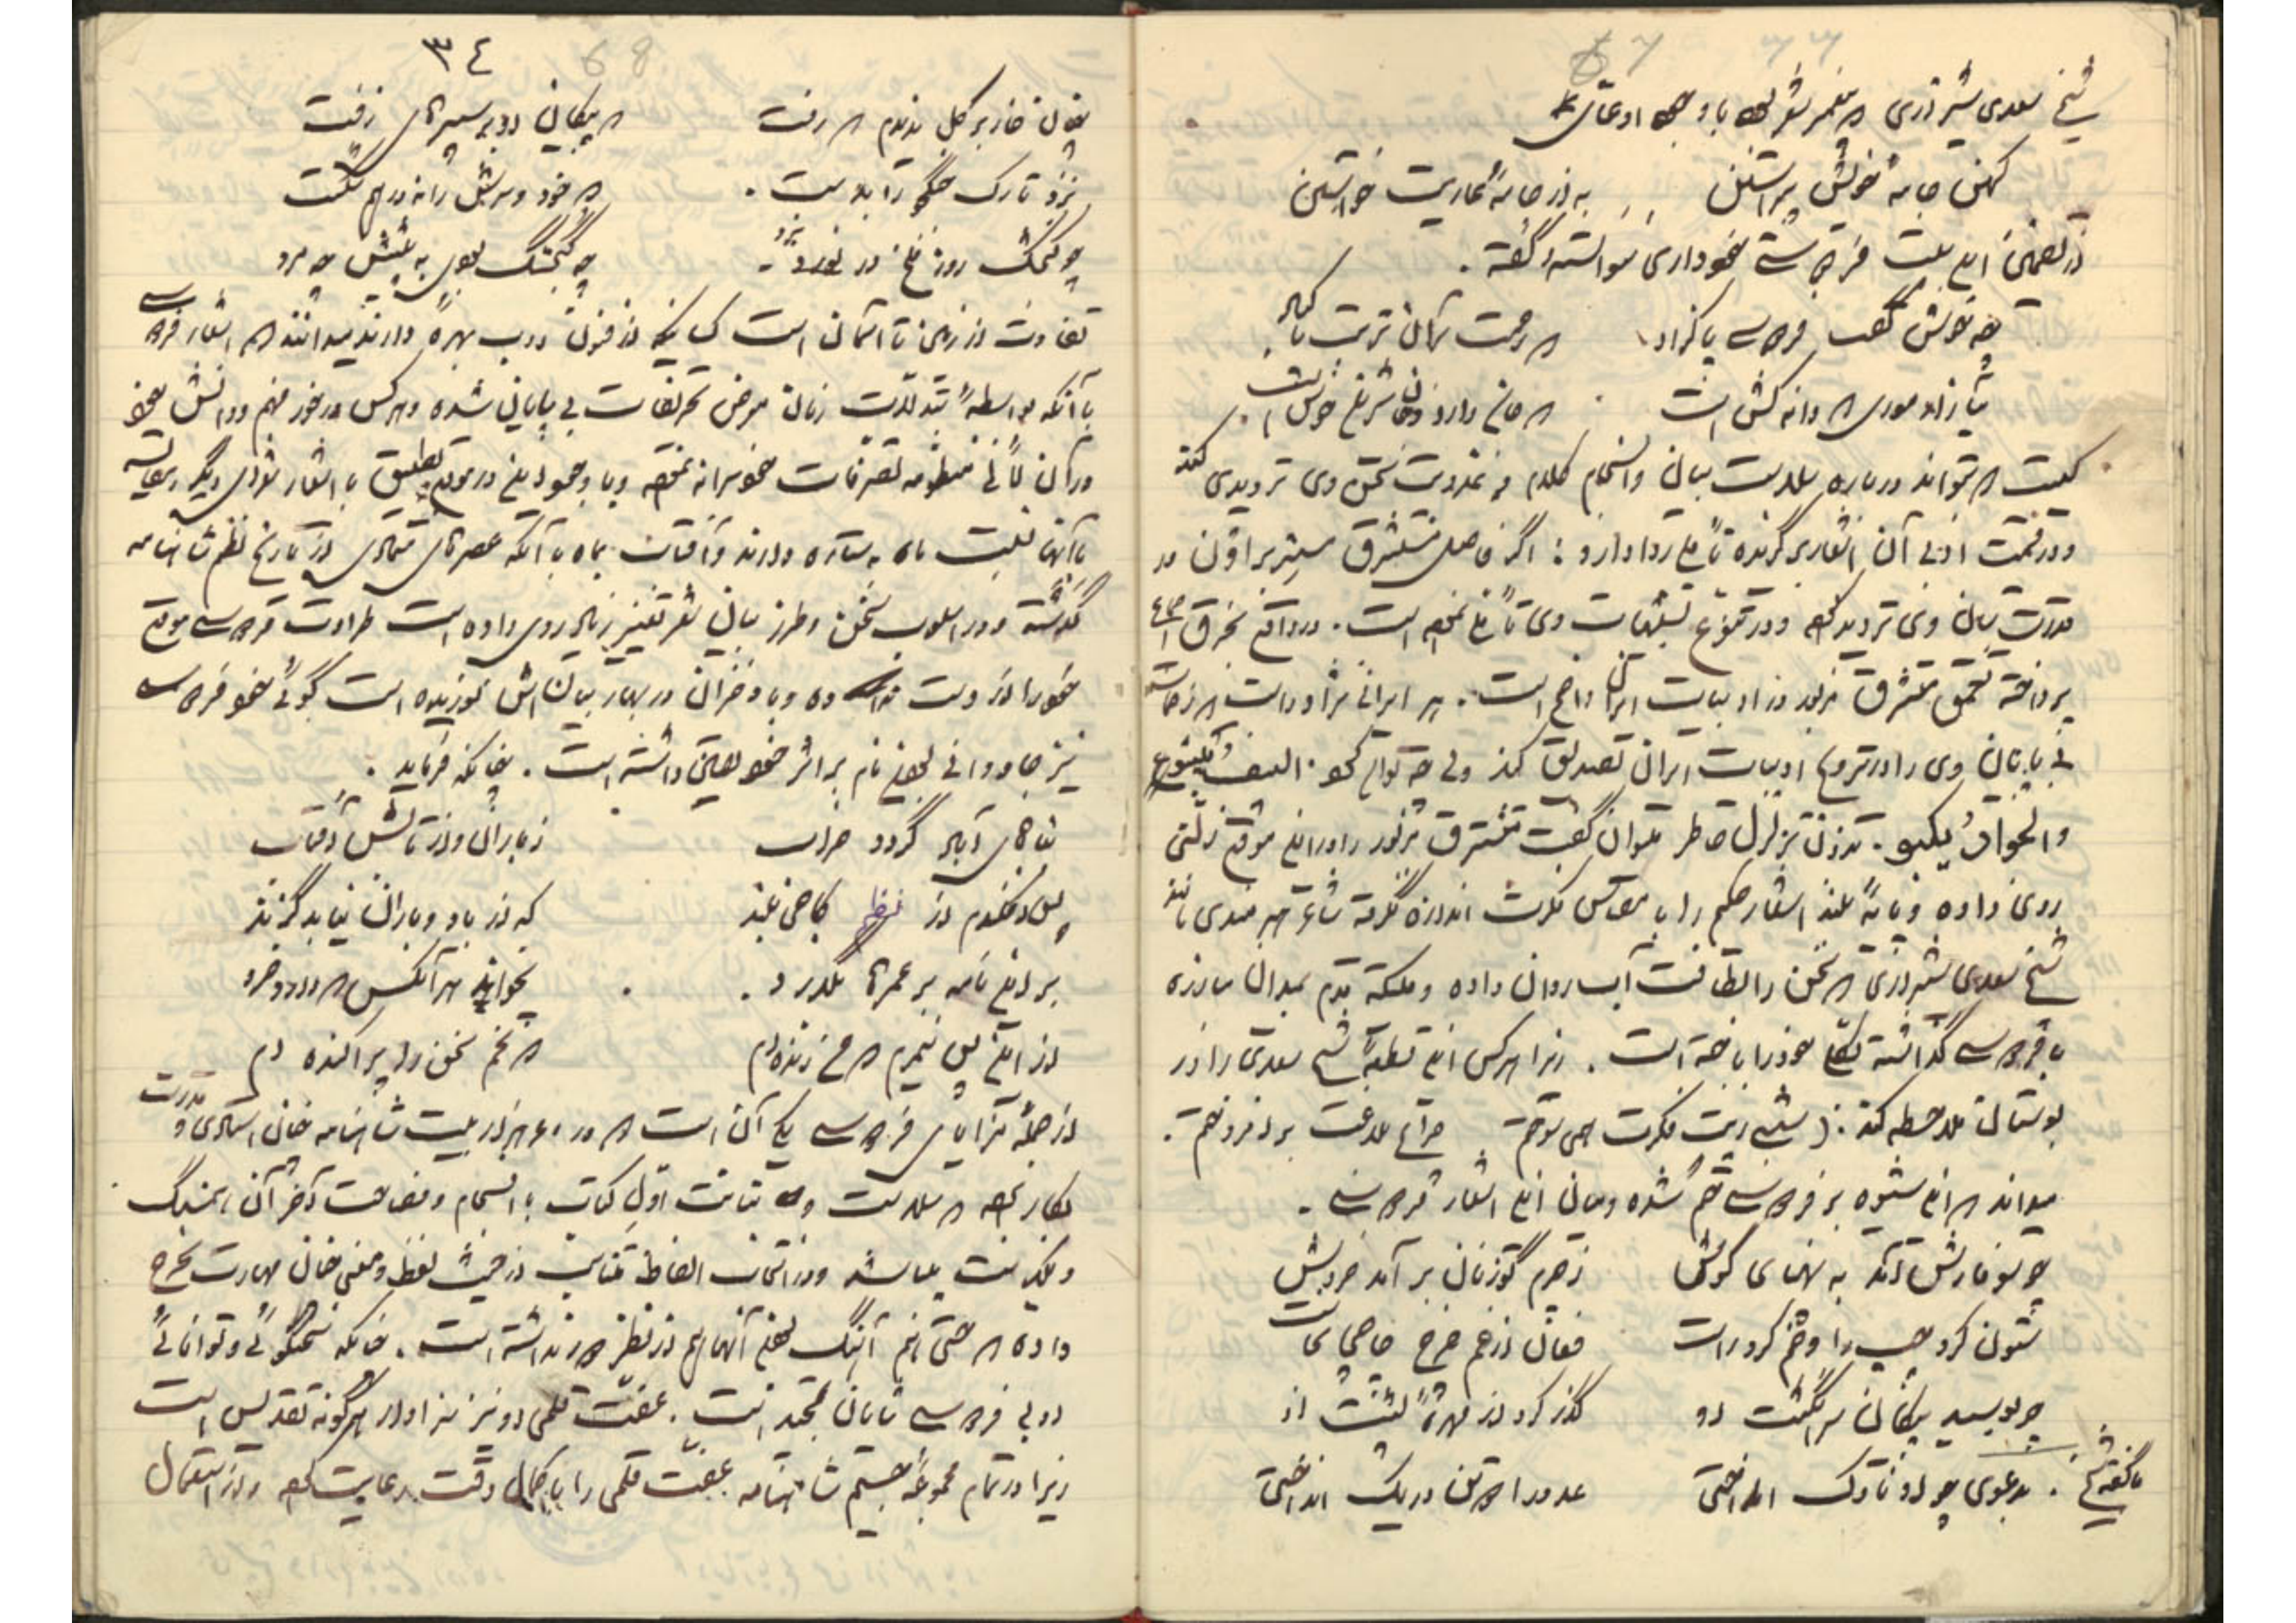 شیخ سعدی شیرازی که پیغمبر شعرش
کهن جامهٔ خویش پیراستن به از جامهٔ عاریت خواستن
در تضمین این بیت فردوسی خودداری نتوانسته گفته.
چه خوش گفت فردوسی پاکزاد که رحمت بر آن تربت پاک باد
میازار موری که دانه کش است که جان دارد و جان شیرین خوش است.
کیست که بتواند درباره سلاست بیان و انسجام کلام و عذوبت سخن وی تردیدی کند
و در قیمت ادبی آن اشعار برگزیده تأملی روا دارد: اگر فاضل مستشرق مستر براون در
قدرت بیان وی تردید کرده و در تنوع تشبیهات وی تأمل نموده است. در واقع بخرق اجماع
پرداخته تعمق مستشرق مزبور در ادبیات ایران واضح است. هر ایرانی نژاد و راست
بی پایان وی را در ترویج ادبیات ایران تصدیق کند ولی چه توان کرد. السیف ینبو
والجواد یکبو. بدون تزلزل خاطر میتوان گفت مستشرق مزبور را در این موقع زلتی
روی داده و پایهٔ بلند اشعار حکیم را با مقیاس فکرت اندازه نگرفته شاعر هنرمندی مانند
شیخ سعدی شیرازی که سخن را لطافت آب روان داده و قدم بمیدان مبارزه
با فردوسی گذاشته خود را باخته است. زیرا هر کس این شیخ سعدی را در
بوستان ملاحظه کند: شبی زیت فکرت همی سوختم چراغ بلاغت برافروختم.
میداند که این شیوه بر فردوسی ختم شده و میان این اشعار فردوسی.
چو سوفارش آمد به پهنای گوش ز چرم گوزنان بر آمد خروش
ستون کرد چپ را و خم کرد راست فغان از خم چرخ چاچی بخاست
چو بوسید پیکان سر انگشت او گذر کرد از مهرهٔ پشت او
با گفته شیخ. بدعوی چو او ناوک انداختی عدو را دو تن در یک انداختی
۳٤ 68
چنان خار بر گل ندیدم که رفت که پیکان او در سپرهای زفت
نزد تارک جنگجو را بدست. که خود و سرش را نه درهم شکست
چو گنجشک روز ملخ در نبرد. چه گنجشک بودی به پیشش چه مرد
تفاوت از زمین تا آسمان است کسانیکه از فنون ادب بهرهٔ دارند میدانند که اشعار فردوسی
با آنکه بواسطهٔ تبدلات زمان معرض تحریفات بی پایان شده و هر کس در خور فهم و دانش خود
در آن منظومه تصرفات خودسرانه نموده و با وجود این در موقع تطبیق با اشعار شعرای دیگر
با آنها نسبت ماه به ستاره دارند و آفتاب بماه با آنکه عصرهای متمادی از تاریخ نظم شاهنامه
گذشته و در اسلوب سخن و طرز بیان شعر تغییر زیاد روی داده است طراوت فردوسی موقع
خود را از دست نداده و باد خزان در بهار بیان اش نوزیده است گوئی خود فردوسی
نیز جاودانی بودن نام بر اثر خود یقین داشته است. چنانکه فرماید.
بناهای آباد گردد خراب ز باران و از تابش آفتاب
پی افکندم از نظم کاخی بلند که از باد و باران نیابد گزند
بر این نامه بر عمرها بگذرد. بخواند هر آنکس که دارد خرد
از این پس نمیرم که من زنده ام که تخم سخن را پراکنده ام
از جمله مزایای فردوسی یکی آن است که در هر هزار بیت شاهنامه چنان استادی و قدرت
بکار برده که سلاست و متانت اول کتاب با انسجام و فصاحت آخر آن، همسنگ
و یکنواخت میباشد و در انتخاب الفاظ متناسب از حیث لفظ و معنی چنان مهارت بخرج
داده که حتی آهنگ لفظی آنها هم از نظر دور نداشته است. چنانکه سخنگوئی و توانائی
ادبی فردوسی شایان تمجید است. عفت قلمی او نیز سزاوار هرگونه تقدیس است
زیرا در تمام مجموعهٔ ضخیم شاهنامه عفت قلمی را با کمال دقت رعایت کرده و از استعمال